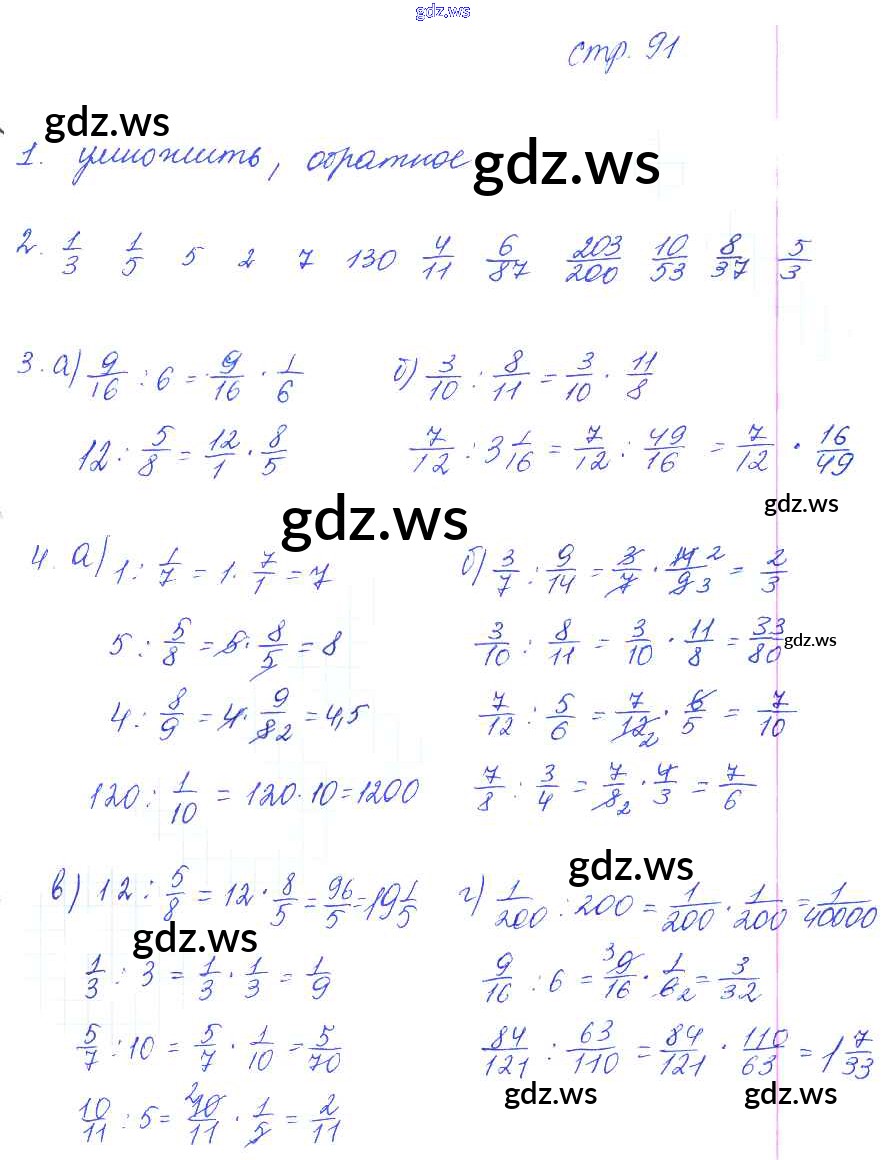 gdz.ws
стр. 91
gdz.ws
1. умножить, обратное gdz.ws
2. 1/3 1/5 5 2 7 130 4/11 6/87 203/200 10/53 8/37 5/3
3. а) 9/16 : 6 = 9/16 · 1/6 б) 3/10 : 8/11 = 3/10 · 11/8
12 : 5/8 = 12/1 · 8/5 7/12 : 3 1/16 = 7/12 : 49/16 = 7/12 · 16/49
gdz.ws
gdz.ws
4. а) 1 : 1/7 = 1 · 7/1 = 7 б) 3/7 : 9/14 = 3/7 · 14 2/9 3 = 2/3
5 : 5/8 = 5 · 8/5 = 8 3/10 : 8/11 = 3/10 · 11/8 = 33/80 gdz.ws
4 : 8/9 = 4 · 9/8 2 = 4,5 7/12 : 5/6 = 7/12 2 · 6/5 = 7/10
120 : 1/10 = 120 · 10 = 1200 7/8 : 3/4 = 7/8 2 · 4/3 = 7/6
gdz.ws
в) 12 : 5/8 = 12 · 8/5 = 96/5 = 19 1/5 г) 1/200 : 200 = 1/200 · 1/200 = 1/40000
gdz.ws
1/3 : 3 = 1/3 · 1/3 = 1/9 9/16 : 6 = 3 9/16 · 1/6 2 = 3/32
5/7 : 10 = 5/7 · 1/10 = 5/70 84/121 : 63/110 = 84/121 · 110/63 = 1 7/33
gdz.ws gdz.ws
10/11 : 5 = 2 10/11 · 1/5 = 2/11